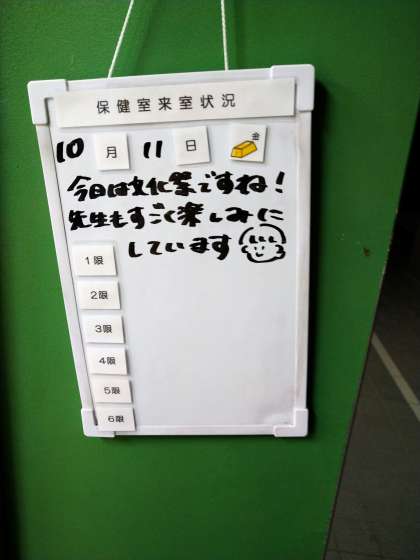 保健室来室状況
10月11日 金
今日は文化祭ですね!
先生もすごく楽しみに
しています
1限
2限
3限
4限
5限
6限